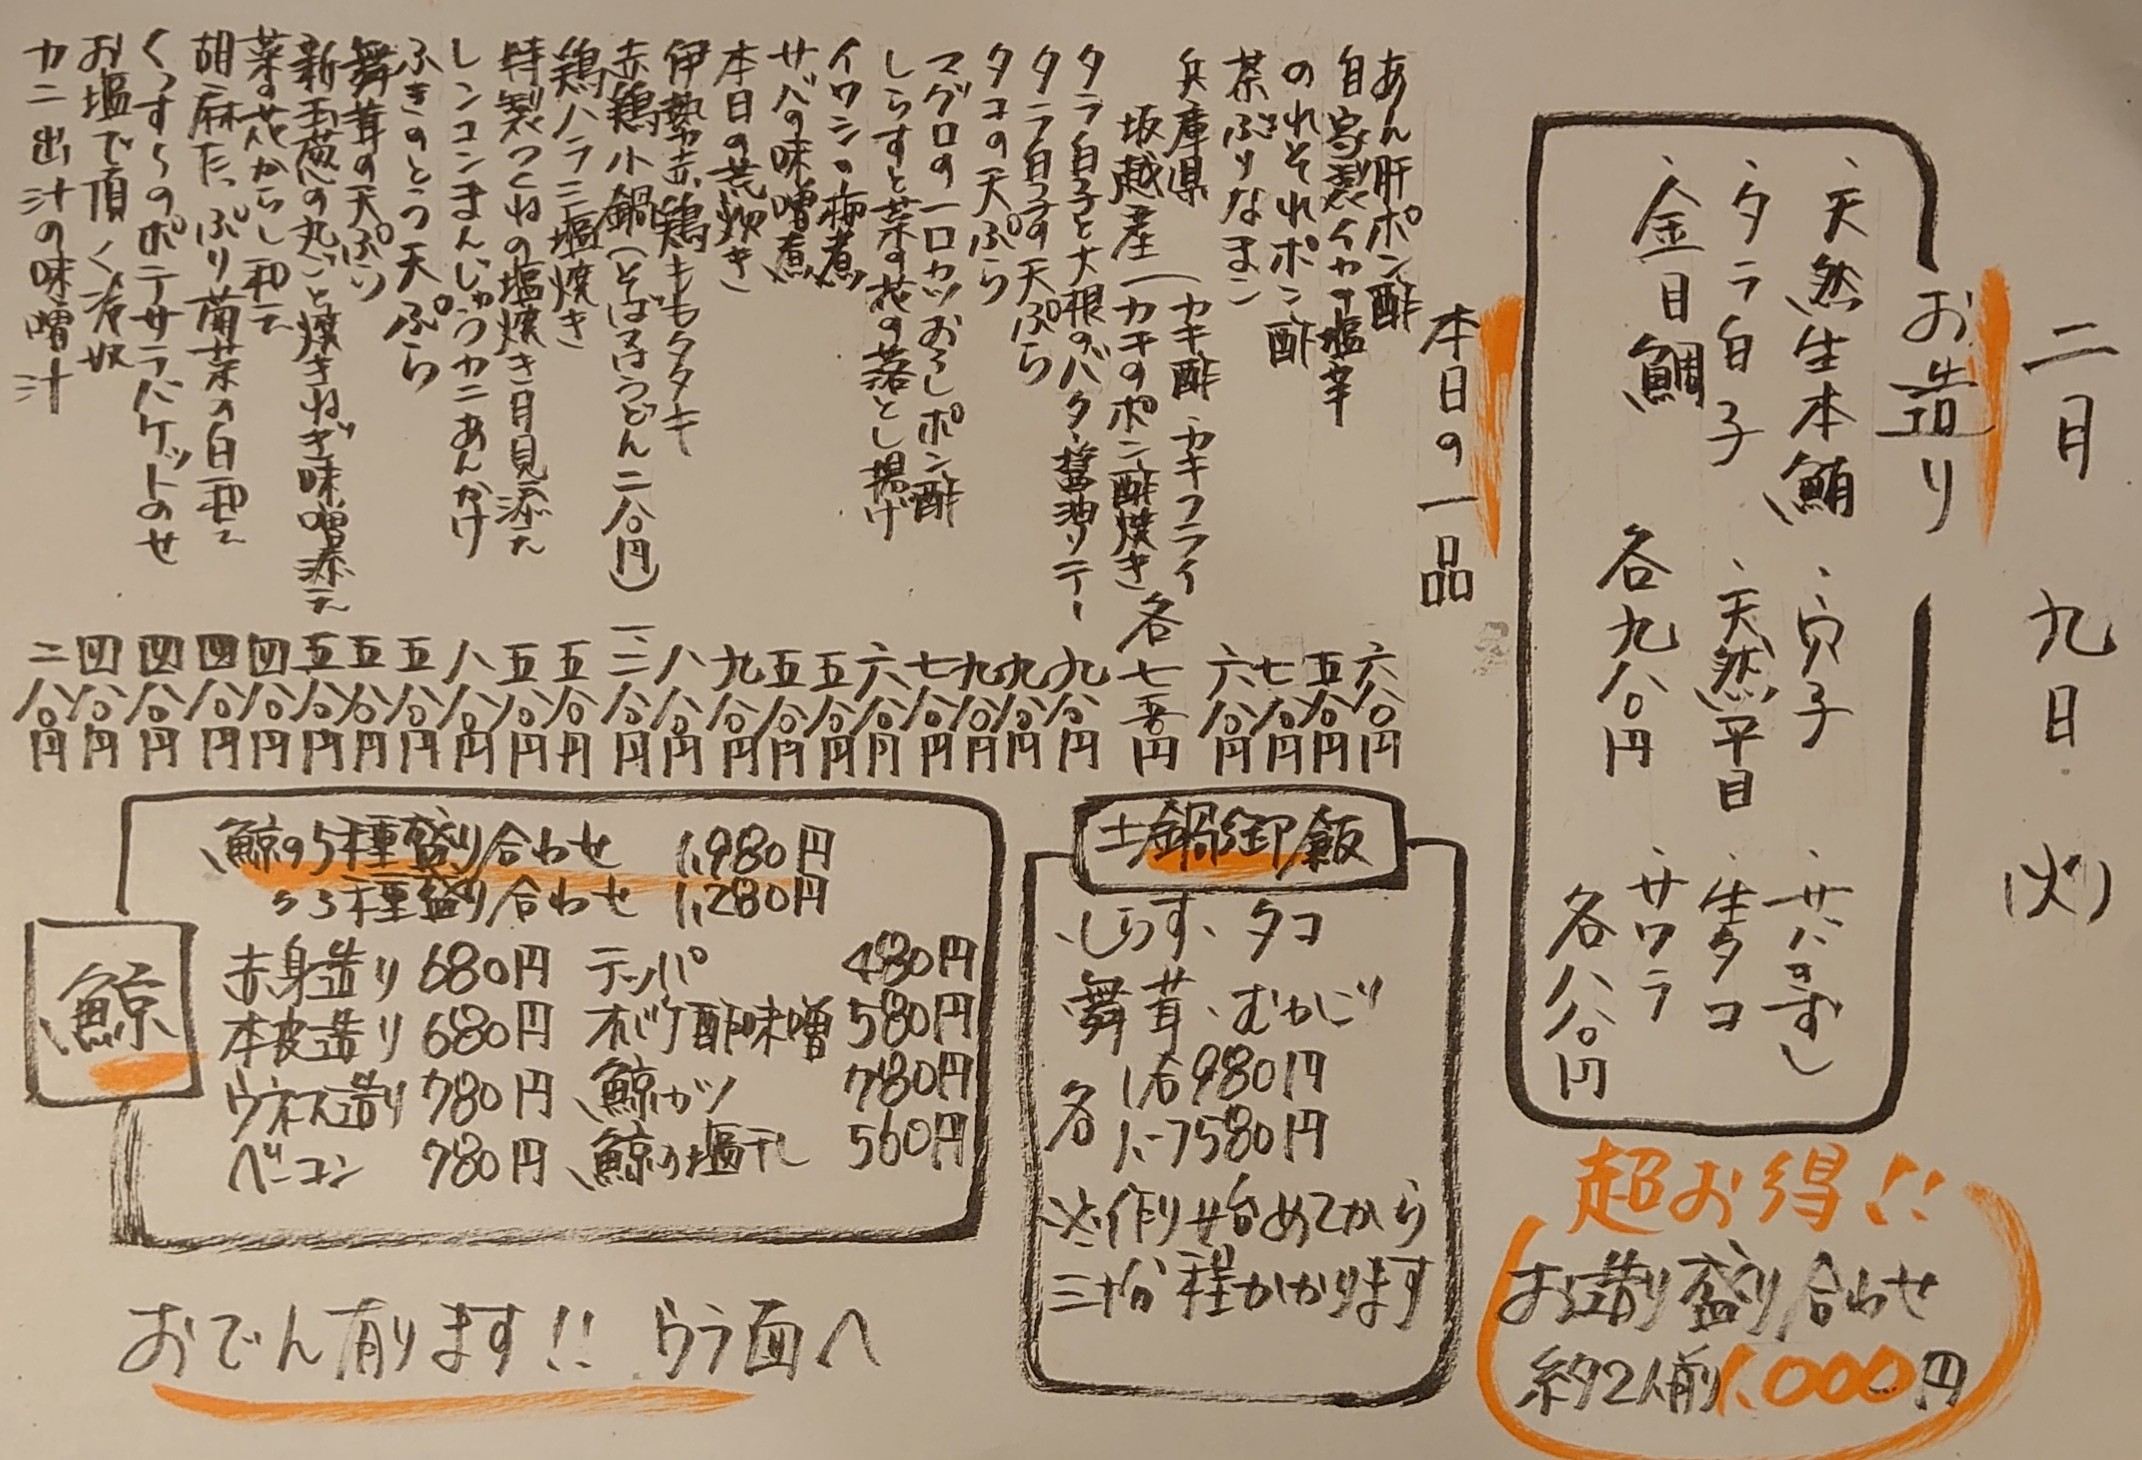 二月 九日 (火)
お造り
、天然生本鮪 、穴子 、サバのすし
、タラ白子 、天然平目 、生タコ
、金目鯛 、サワラ
各九八〇円 各八八〇円
超お得!!
お造り盛り合わせ
約2人前1,000円
本日の一品
あん肝ポン酢 六八〇円
自家製イカの塩辛 五八〇円
のれそれポン酢 七八〇円
茶ぶりなまこ 六八〇円
兵庫県
坂越産(カキ酢・カキフライ
(カキのポン酢焼き 各七八〇円
タラ白子と大根のバター醤油ソテー 九八〇円
タラ白子の天ぷら 九八〇円
タコの天ぷら 九八〇円
マグロの一口カツおろしポン酢 七八〇円
しらすと菜の花の落とし揚げ 六八〇円
イワシの梅煮 五八〇円
サバの味噌煮 五八〇円
本日の荒炊き 九八〇円
伊勢赤鶏ももタタキ 八八〇円
赤鶏小鍋(そば又はうどん二八〇円) 一、二八〇円
鶏ハラミ塩焼き 五八〇円
特製つくねの塩焼き月見添え 五八〇円
レンコンまんじゅうカニあんかけ 八八〇円
ふきのとう天ぷら 五八〇円
舞茸の天ぷら 五八〇円
新玉葱の丸ごと焼きねぎ味噌添え 五八〇円
菜の花からし和え 四八〇円
胡麻たっぷり菊菜の白和え 四八〇円
くんすけのポテサラバケットのせ 四八〇円
お塩で頂く冷奴 四八〇円
カニ出汁の味噌汁 二八〇円
土鍋御飯
、しらす、タコ
舞茸、むかご
各 1合980円
1.5合1580円
※作り始めてから
三十分程かかります
鯨
鯨の5種盛り合わせ 1,980円
〃3種盛り合わせ 1,280円
赤身造り 680円 テッパ 480円
本皮造り 680円 オバケ酢味噌 580円
ウネス造り 780円 鯨カツ 780円
ベーコン 780円 鯨の塩干し 560円
おでん有ります!! ウラ面へ